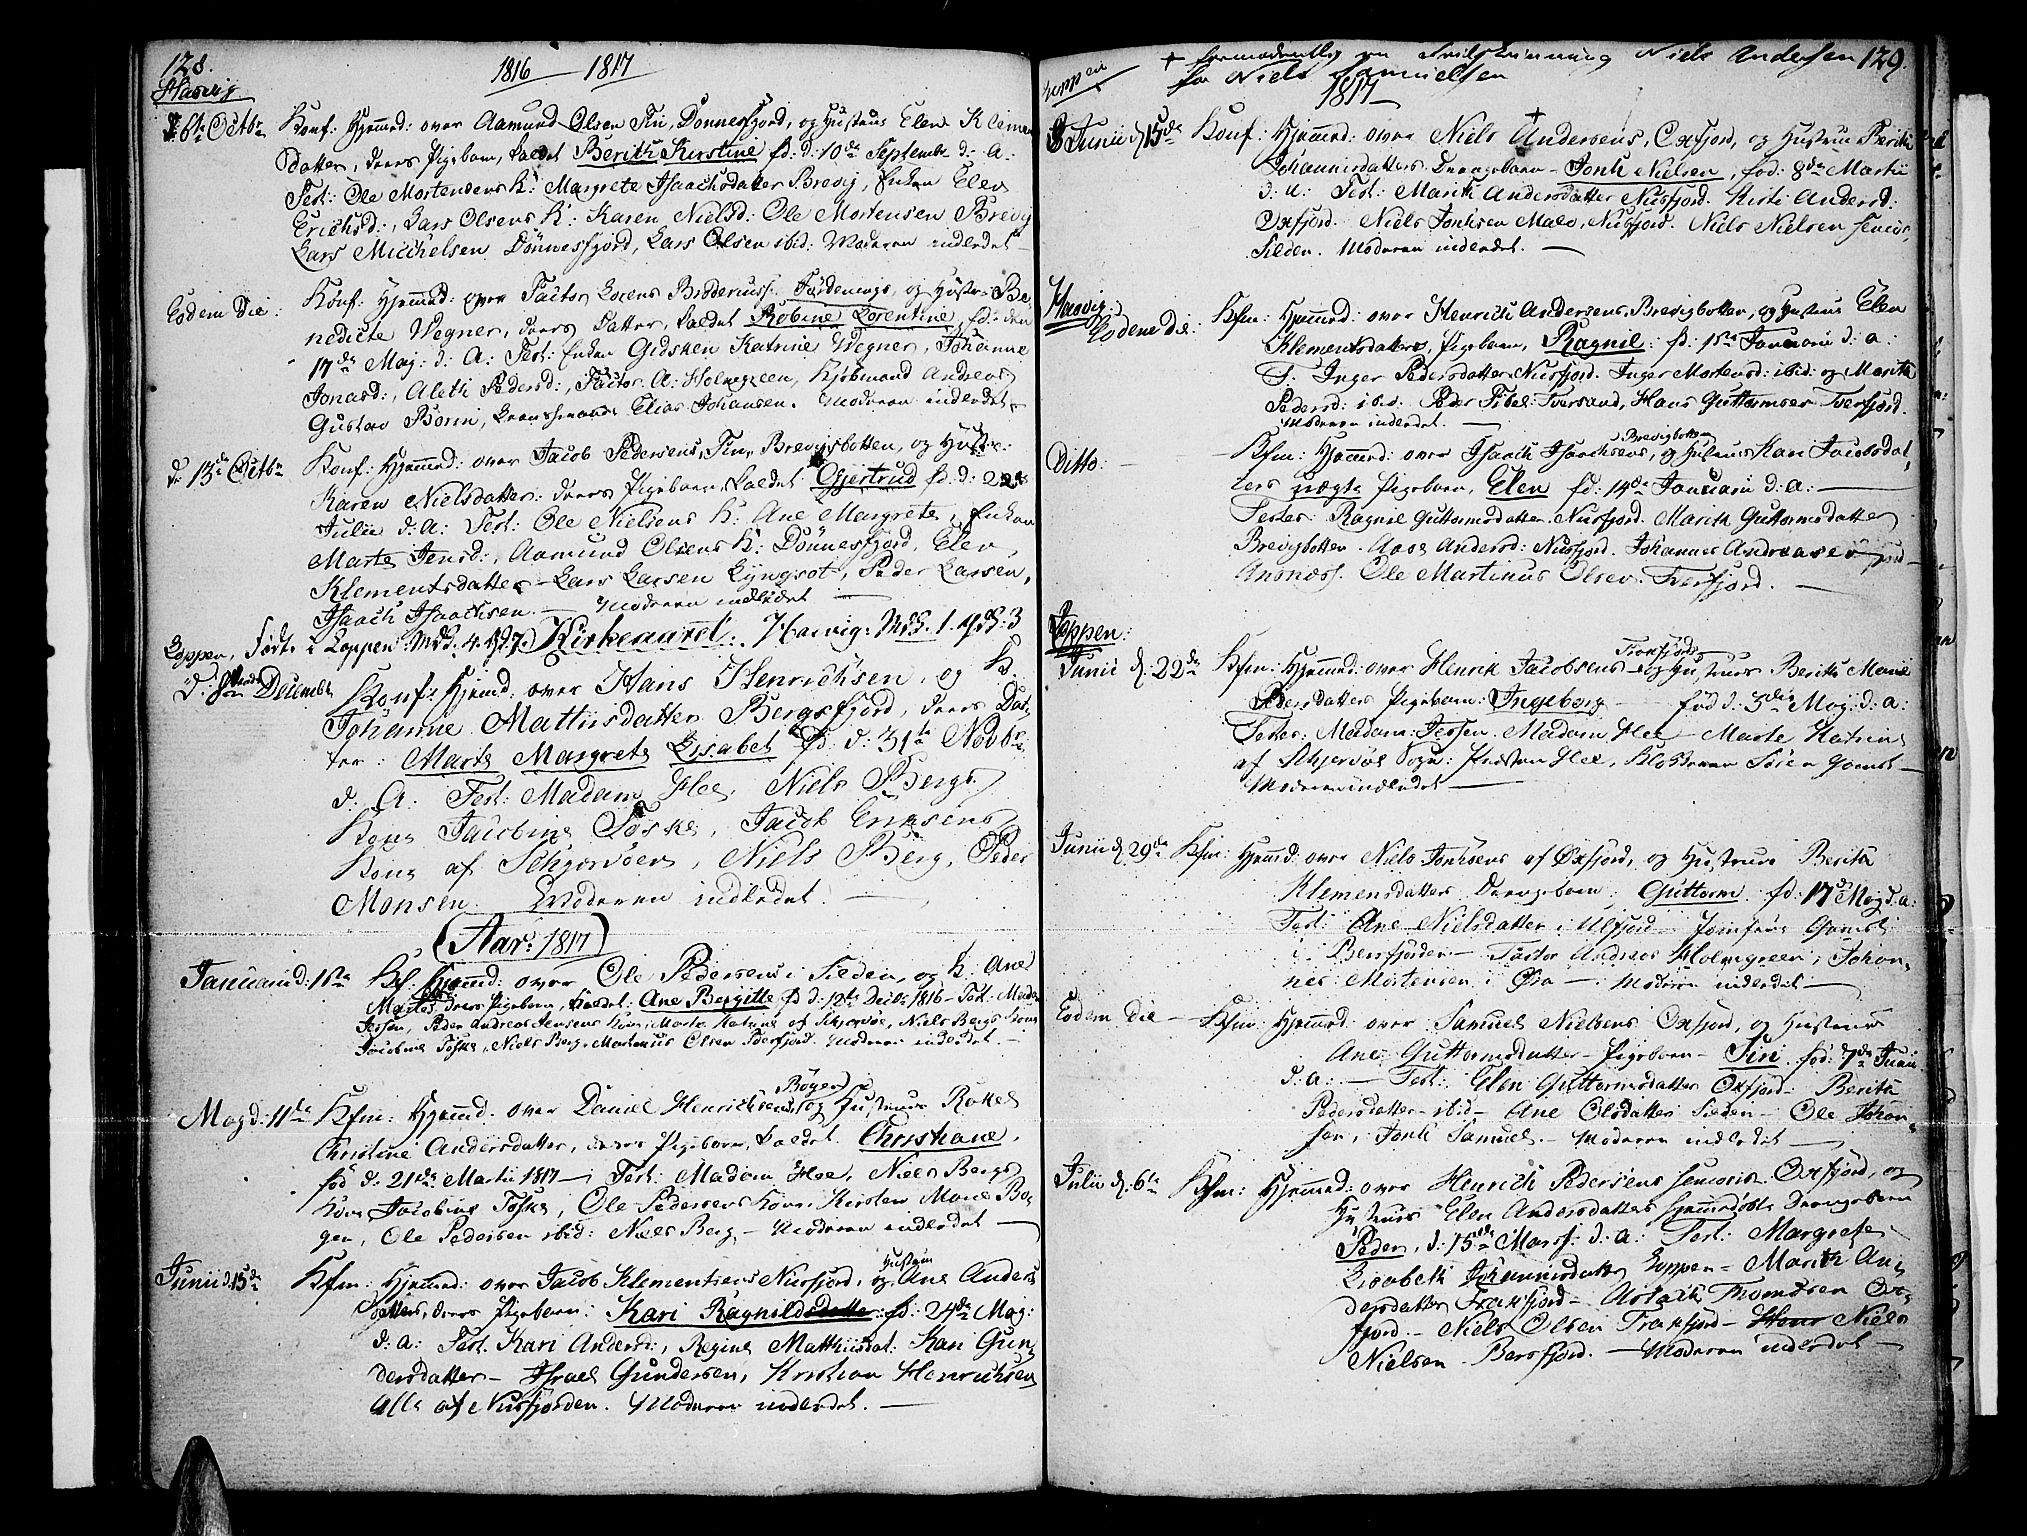 128.
1816 — 1817
Hasvig
d: 6te Octbr Konf: Hjemed: over Aamund Olsen Fin, Donnesfjord, og Hustrue Elen Klemen
datter, deres Pigebarn, kaldet Berith Kirstine fd: d: 10de Septembr d: A:
Test: Ole Mortensens K: Margrete Isaachsdatter Brevig, Enken Elen
Erichsd:, Lars Olsens K: Karen Nielsd: Ole Mortensen Brevig
Lars Micchelsen Dönnesfjord, Lars Olsen ibid: Moderen indledet
Eodem Die: Konf: Hjemed: over Factor Lorens Broderuss. og Hustr: Be
nedicte Wegner, deres Datter, kaldet Robine Lorentine, fd: den
17de Maj: d: A: Test: Enken Gidsken Katrine Wegner, Johanne
Jonasd:, Aleth Pedersd:, Factor A: Holmgreen, Kjøbmand Andreas
Gustav Borin, Elias Johansen. Moderen indledet
d: 13de Octbr Konf: Hjemed: over Jacob Pedersens, Fin, Brevigbotten, og Hustr:
Karen Nielsdatter: deres Pigebarn, kaldet Gjertrud fd: d: 22de
Julii d: A: Test: Ole Nielsens K: Ane Margrete, Enken
Marte Jensd:, Aamund Olsens K: Dönnesfjord, Elen
Klementsdatter - Lars Larsen Lyngsot, Peder Larsen,
Isaach Isaachsen. — Moderen indledet —
Loppen, Födte i Loppen: Md. 4. Qd. 7. Kirkeaaret: Hasvig: Md. 1. Qd: 3
Decembr Konf: Hjemd: over Hans Henrichsen, og K:
Johanne Mathisdatter Bergsfjord, deres Dat
ter: Marte Margrete Lisabet fd: d: 31te Novbr
d: A: Test: Madam Hee, Niels Bergs
Kone Jacobine Foske, Jacob Eriksens
Kone af Schjervöen, Niels Berg, Peder
Monsen. Moderen indledet. —
(Aar: 1817)
Januarii d: 1ste Kf: Hjemd: over Ole Pedersens i Silden, og K: Ane
Martes deres Pigebarn, kaldet: Ane Bergitte, fd d: 12te Decbr 1816 - Test: Madam
Jessen, Peder Andreas Jensens Kone, Marte Katrine af Schjervöe, Niels Bergs Kone
Jacobine Foske, Niels Berg, Martinus Olsen Øxfjord. Moderen indledet. —
Böyen
Maj d: 11te Kfm: Hjemed: over Daniel Henrichsens, og Hustrues Rakel
Christine Andersdatter, deres Pigebarn, kaldet Christiane,
fød d: 21de Martii 1817 — Test: Madam Hee, Niels Bergs
Kone Jacobine Foske, Ole Pedersens Kone, Kirsten Marie Bø
gen, Ole Pedersen ibid: Niels Berg, — Moderen indledet —
Hustrue
Junii d: 15de Kfm: Hjemed: over Jacob Klementsens Nusfjord, og Ane Anders
datters, deres Pigebarn: Kari Ragnildsdatter: fd: 24de Maj:
d: A: Test. Kari Andersd:, Regine Matthisdat: Kari Gun
dersdatter — Israel Gundersen, Kristian Henrichsen
Alle af Nusfjorden. Moderen indledet. —
129.
+ formodentlig en Feilskrivning Niels Andersen
for Niels Samuelsen
Loppen
1817
Junii d: 15de Konf: Hjemed: over Niels + Andersens, Oxfjord, og Hustrue Berith
Johannisdatters Drengebarn — Jonk Nielsen, fød: 8de Martii
d: A: Test: Marith Andersdatter Nusfjord. Kirsti Andersd:
Oxfjord. Niels Jonksen Malv, Nusfjord. Niels Nielsen Senior,
Silden. Moderen indledet. —
Hasvig:
Eodem Die: Kfm: Hjemed: over Henrich Andersens, Brevigbotten, og Hustrues Elen
Klementsdatters, Pigebarn, Ragnil: fd: 1ste Januarii d: a:
T. Inger Pedersdatter Nusfjord. Inger Mortensd: ibid: og Marith
Pedersd: ibid. Peder Tversund, Hans Guttormsen Tverfjord.
Moderen indledet. —
Brevigbotten
Ditto. — Kfm: Hjemed: over Isaach Isaachsens, og Hustrues Kari Jacobsdat
ters uægte Pigebarn, Elen fd: 14de Januarii d: a: —
Testes: Ragnil Guttormsdatter Nusfjord. Marith Guttormsdatter
Brevigbotten. Aase Andersd: Nusfjord. Johannes Andreasen
Ansnæss. Ole Martinus Olsen Tverfjord. —
Loppen:
Franfjord
Junii d: 22de Kfm: Hjemed: over Henrik Jacobsens og Hustrues Berith Marie
Pedersdatters Pigebarn: Ingeborg — fød d: 3die Maj: d: a:
Testes: Madam: Jessen. Madam Hee — Marte Katrine
af Schjervöe Sogn: Præsten Hee, Klokkeren Sören Gamst —
Moderen indledet —
Junii d: 29de Kfm: Hjemed: over Niels Jonksens af Øxfjord, og Hustrues Berith
Klemensdatters Drengebarn, Guttorm. fd: 17de Maj d: a:
Test: Ane Nielsdatter i Ulfjord — Jomfrue Gamst
i Bersfjorden — Factor Andreas Holmgreen, Johan
nes Mortensen i Øra — Moderen indledet —
Eodem Die — Kfm: Hjemed: over Samuel Nielsens Oxfjord, og Hustrues
Ane Guttormsdatter — Pigebarn — Siri. fød: 7de Junii
d: a: — Test: Elen Guttormsdatter Oxfjord — Berith
Pedersdatter — ibid — Ane Olsdatter Silden — Ole Johan
sen, Jonk Samuel. — Moderen indledet —
Julii d: 6te Kfm: Hjemed: over Henrich Pedersens Senioris Oxfjord, og
Hustrues Elen Andersdatters hjemedöbte Drengebarn
Peder, d: 15de Marti: d: a: Test: Margrete
Lisabeth Johannisdatter Loppen — Marith An
dersdatter Franfjord — Aslach Thomesen Ox
fjord — Niels Olsen Franfjord — Niels
Nielsen — Bersfjord. — Moderen indledet —